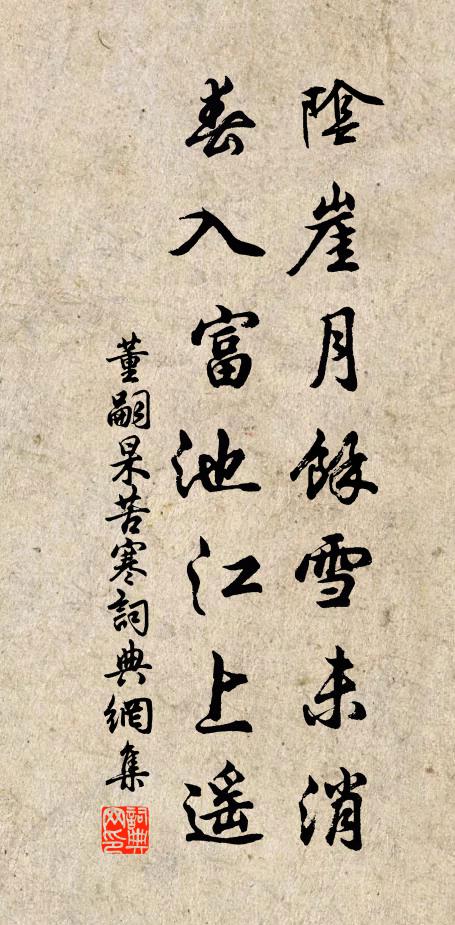 陰崖月餘雪未消
春入富池江上遥
董嗣杲苦寒詞典網集
詞典網印